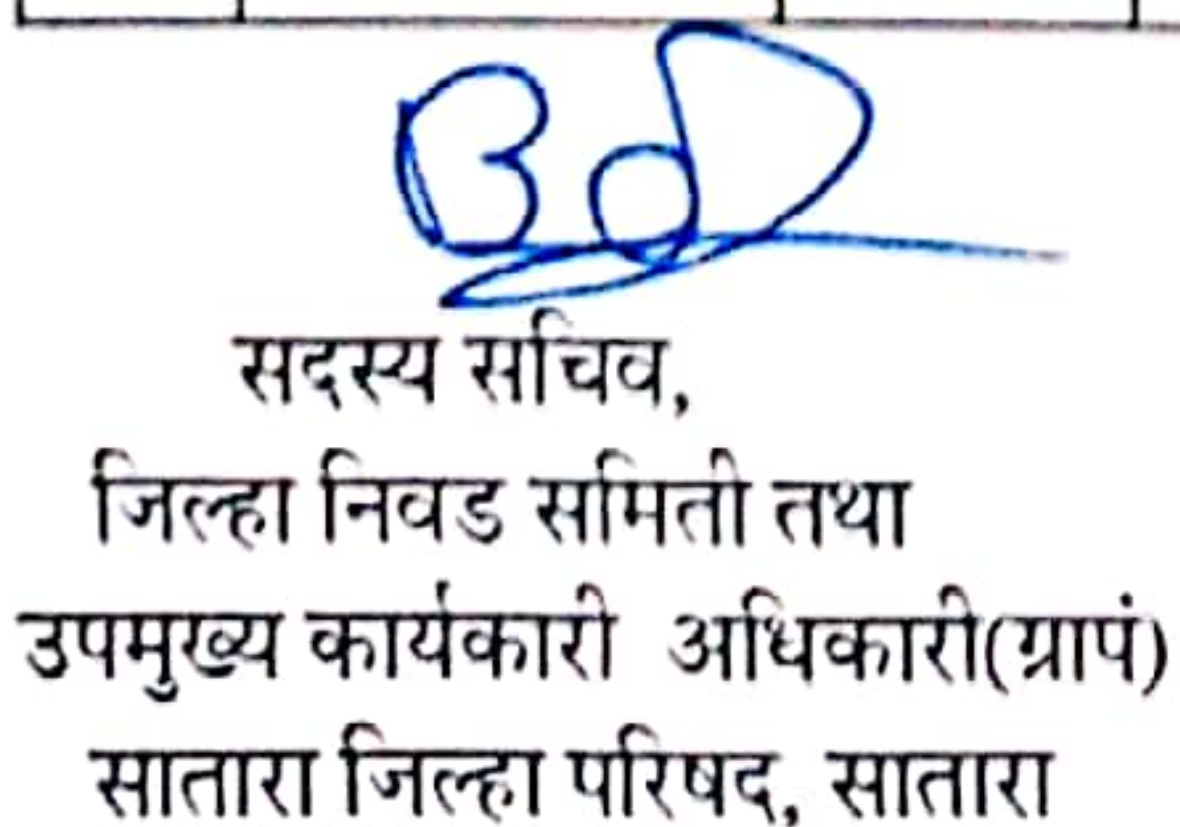 सदस्य सचिव,
जिल्हा निवड समिती तथा
उपमुख्य कार्यकारी अधिकारी(ग्रापं)
सातारा जिल्हा परिषद, सातारा